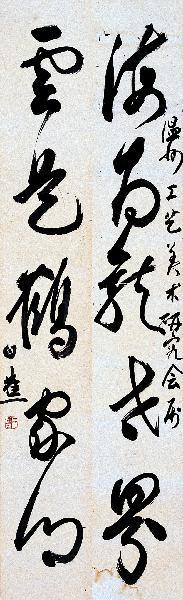 海為龍世界
温州工艺美术研究会属
雲是鶴家鄉
白蕉